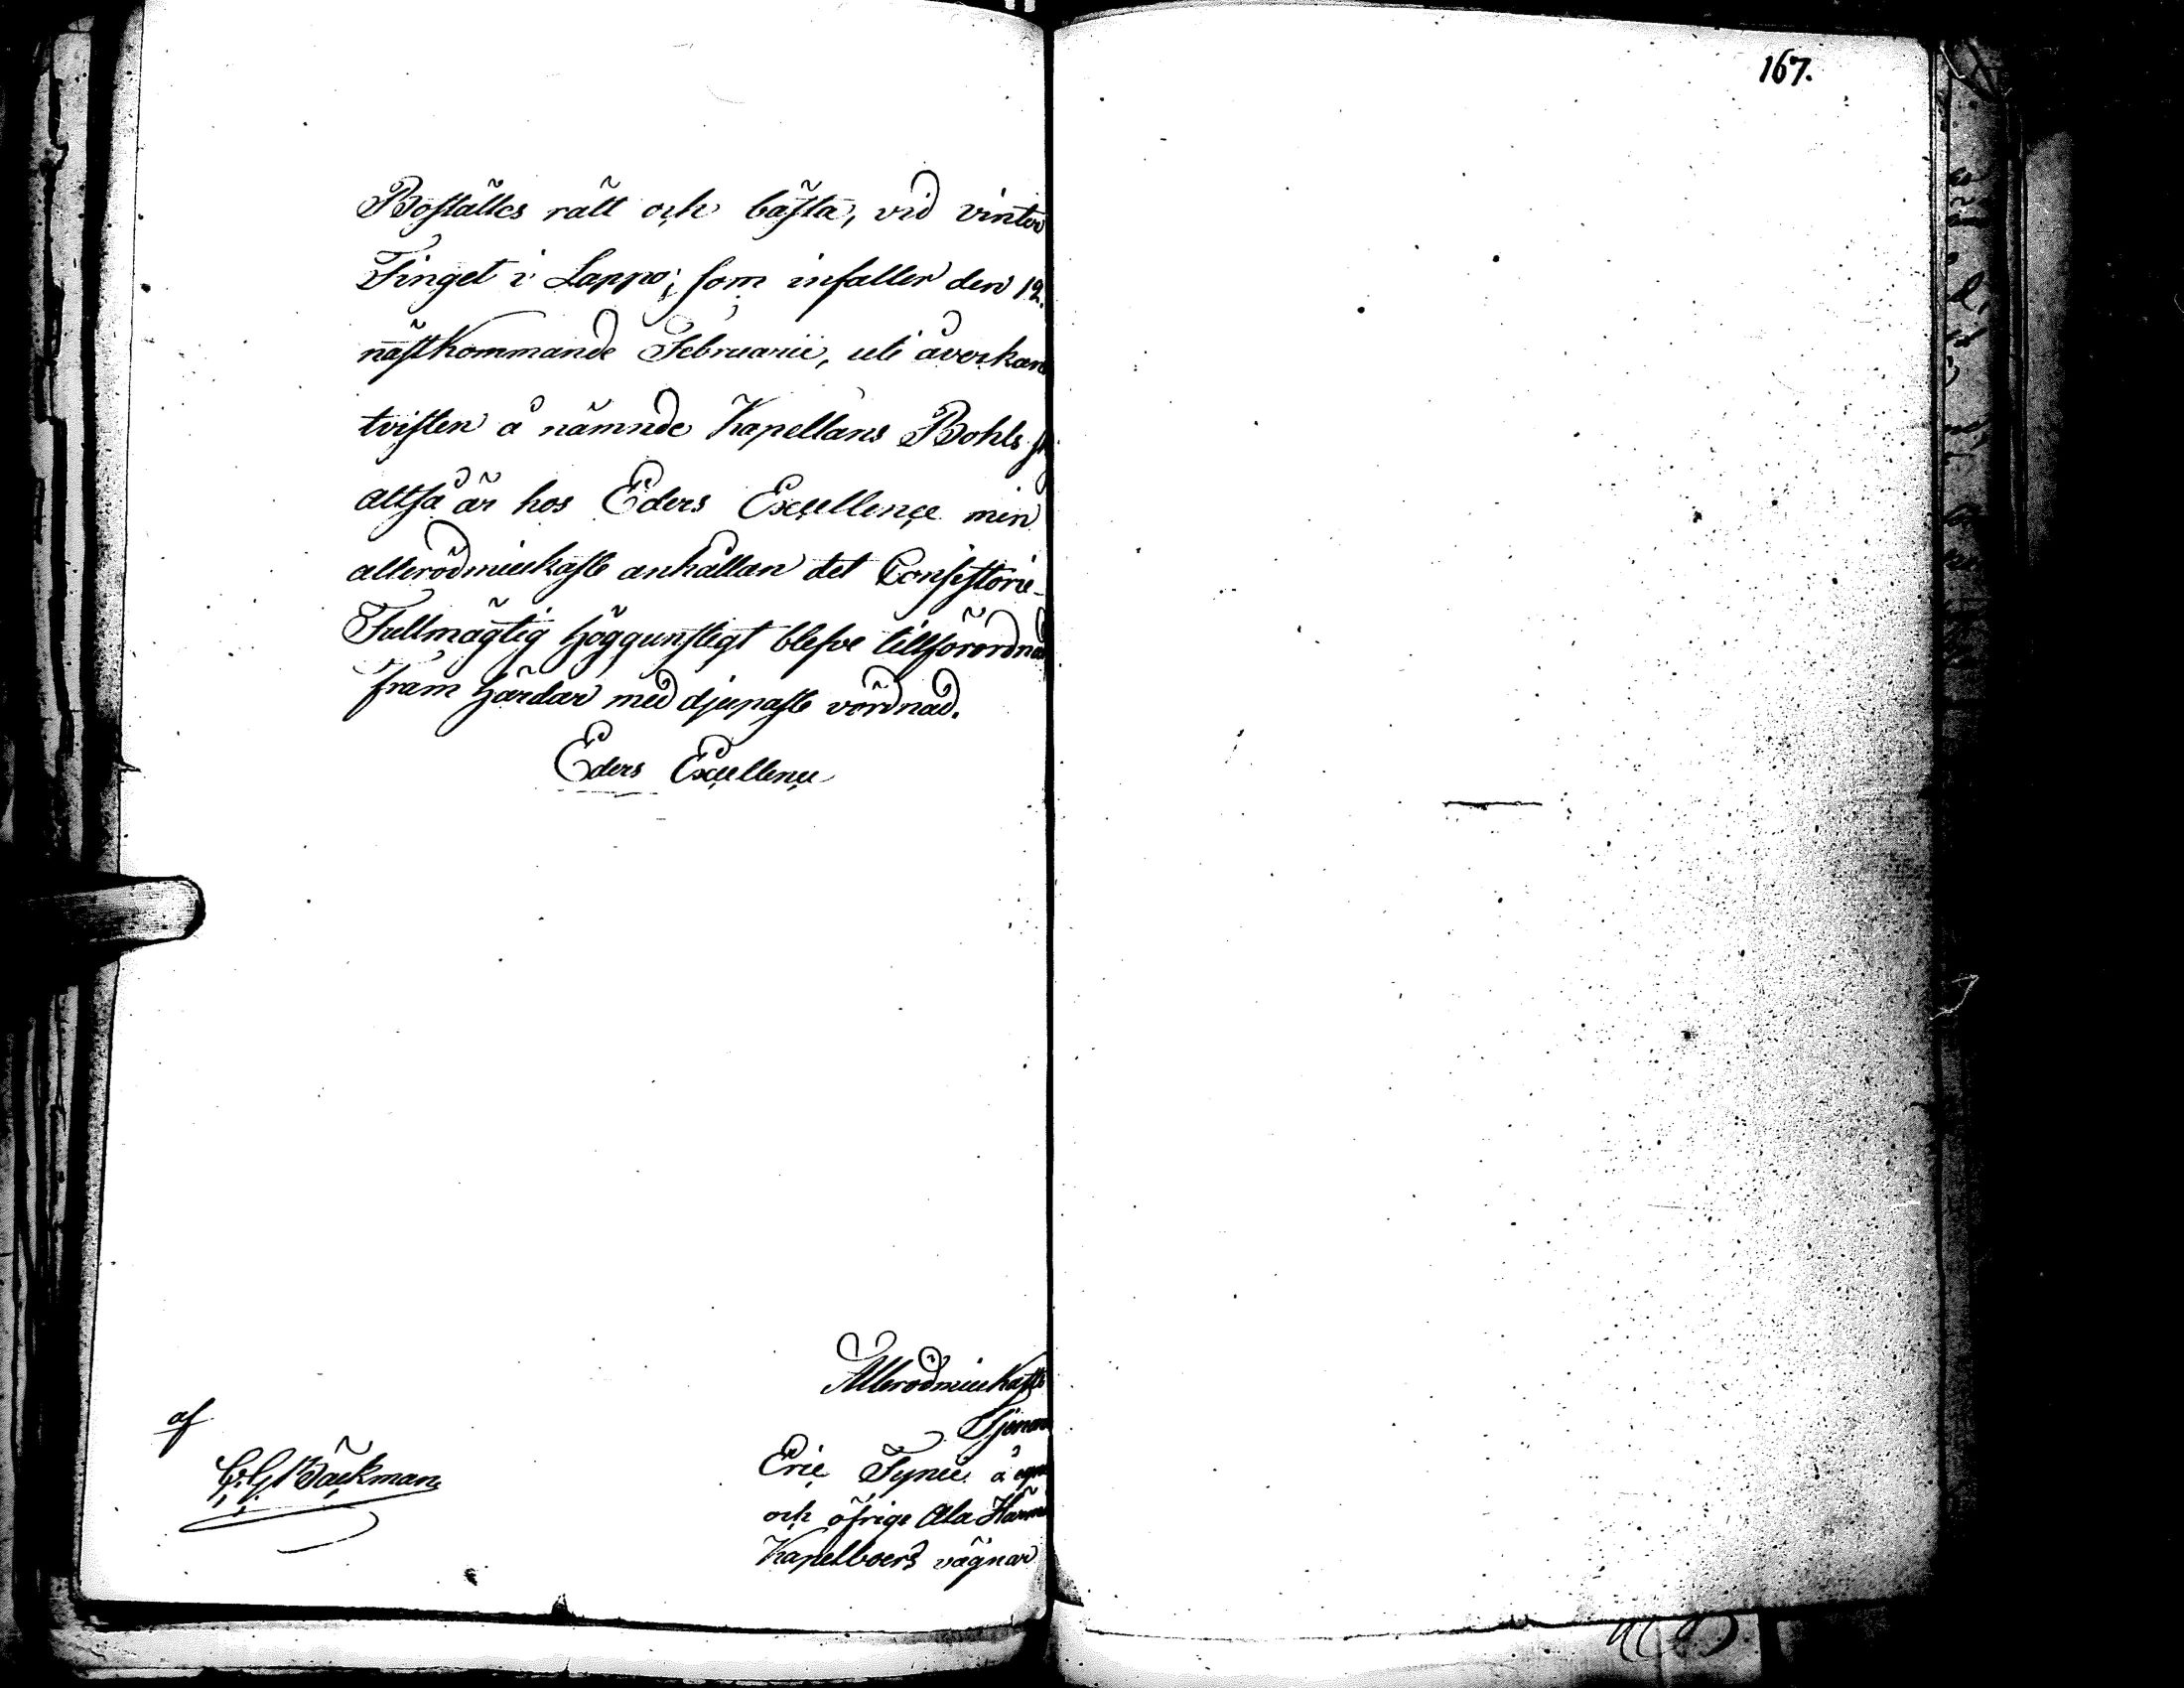 167.
Boställes rätt och bästa, vid vinter
Tinget i Lappo; som infaller den 12.
nästkommande Februarii, uti åverkans
tvisten å nämnde Kapellans Bohls
altså är hos Eders Excellence min
allerödmiukaste anhållan det Consistorie-
Fullmägtig höggunstligt blefve tillförordnad
framhärdar med djupaste vördnad.
Eders Excellence
Allerödmiukaste
Tjenare
af
Backman
Eric Tynii å egne
och öfrige Ala Härmä
Kapelboers vägnar